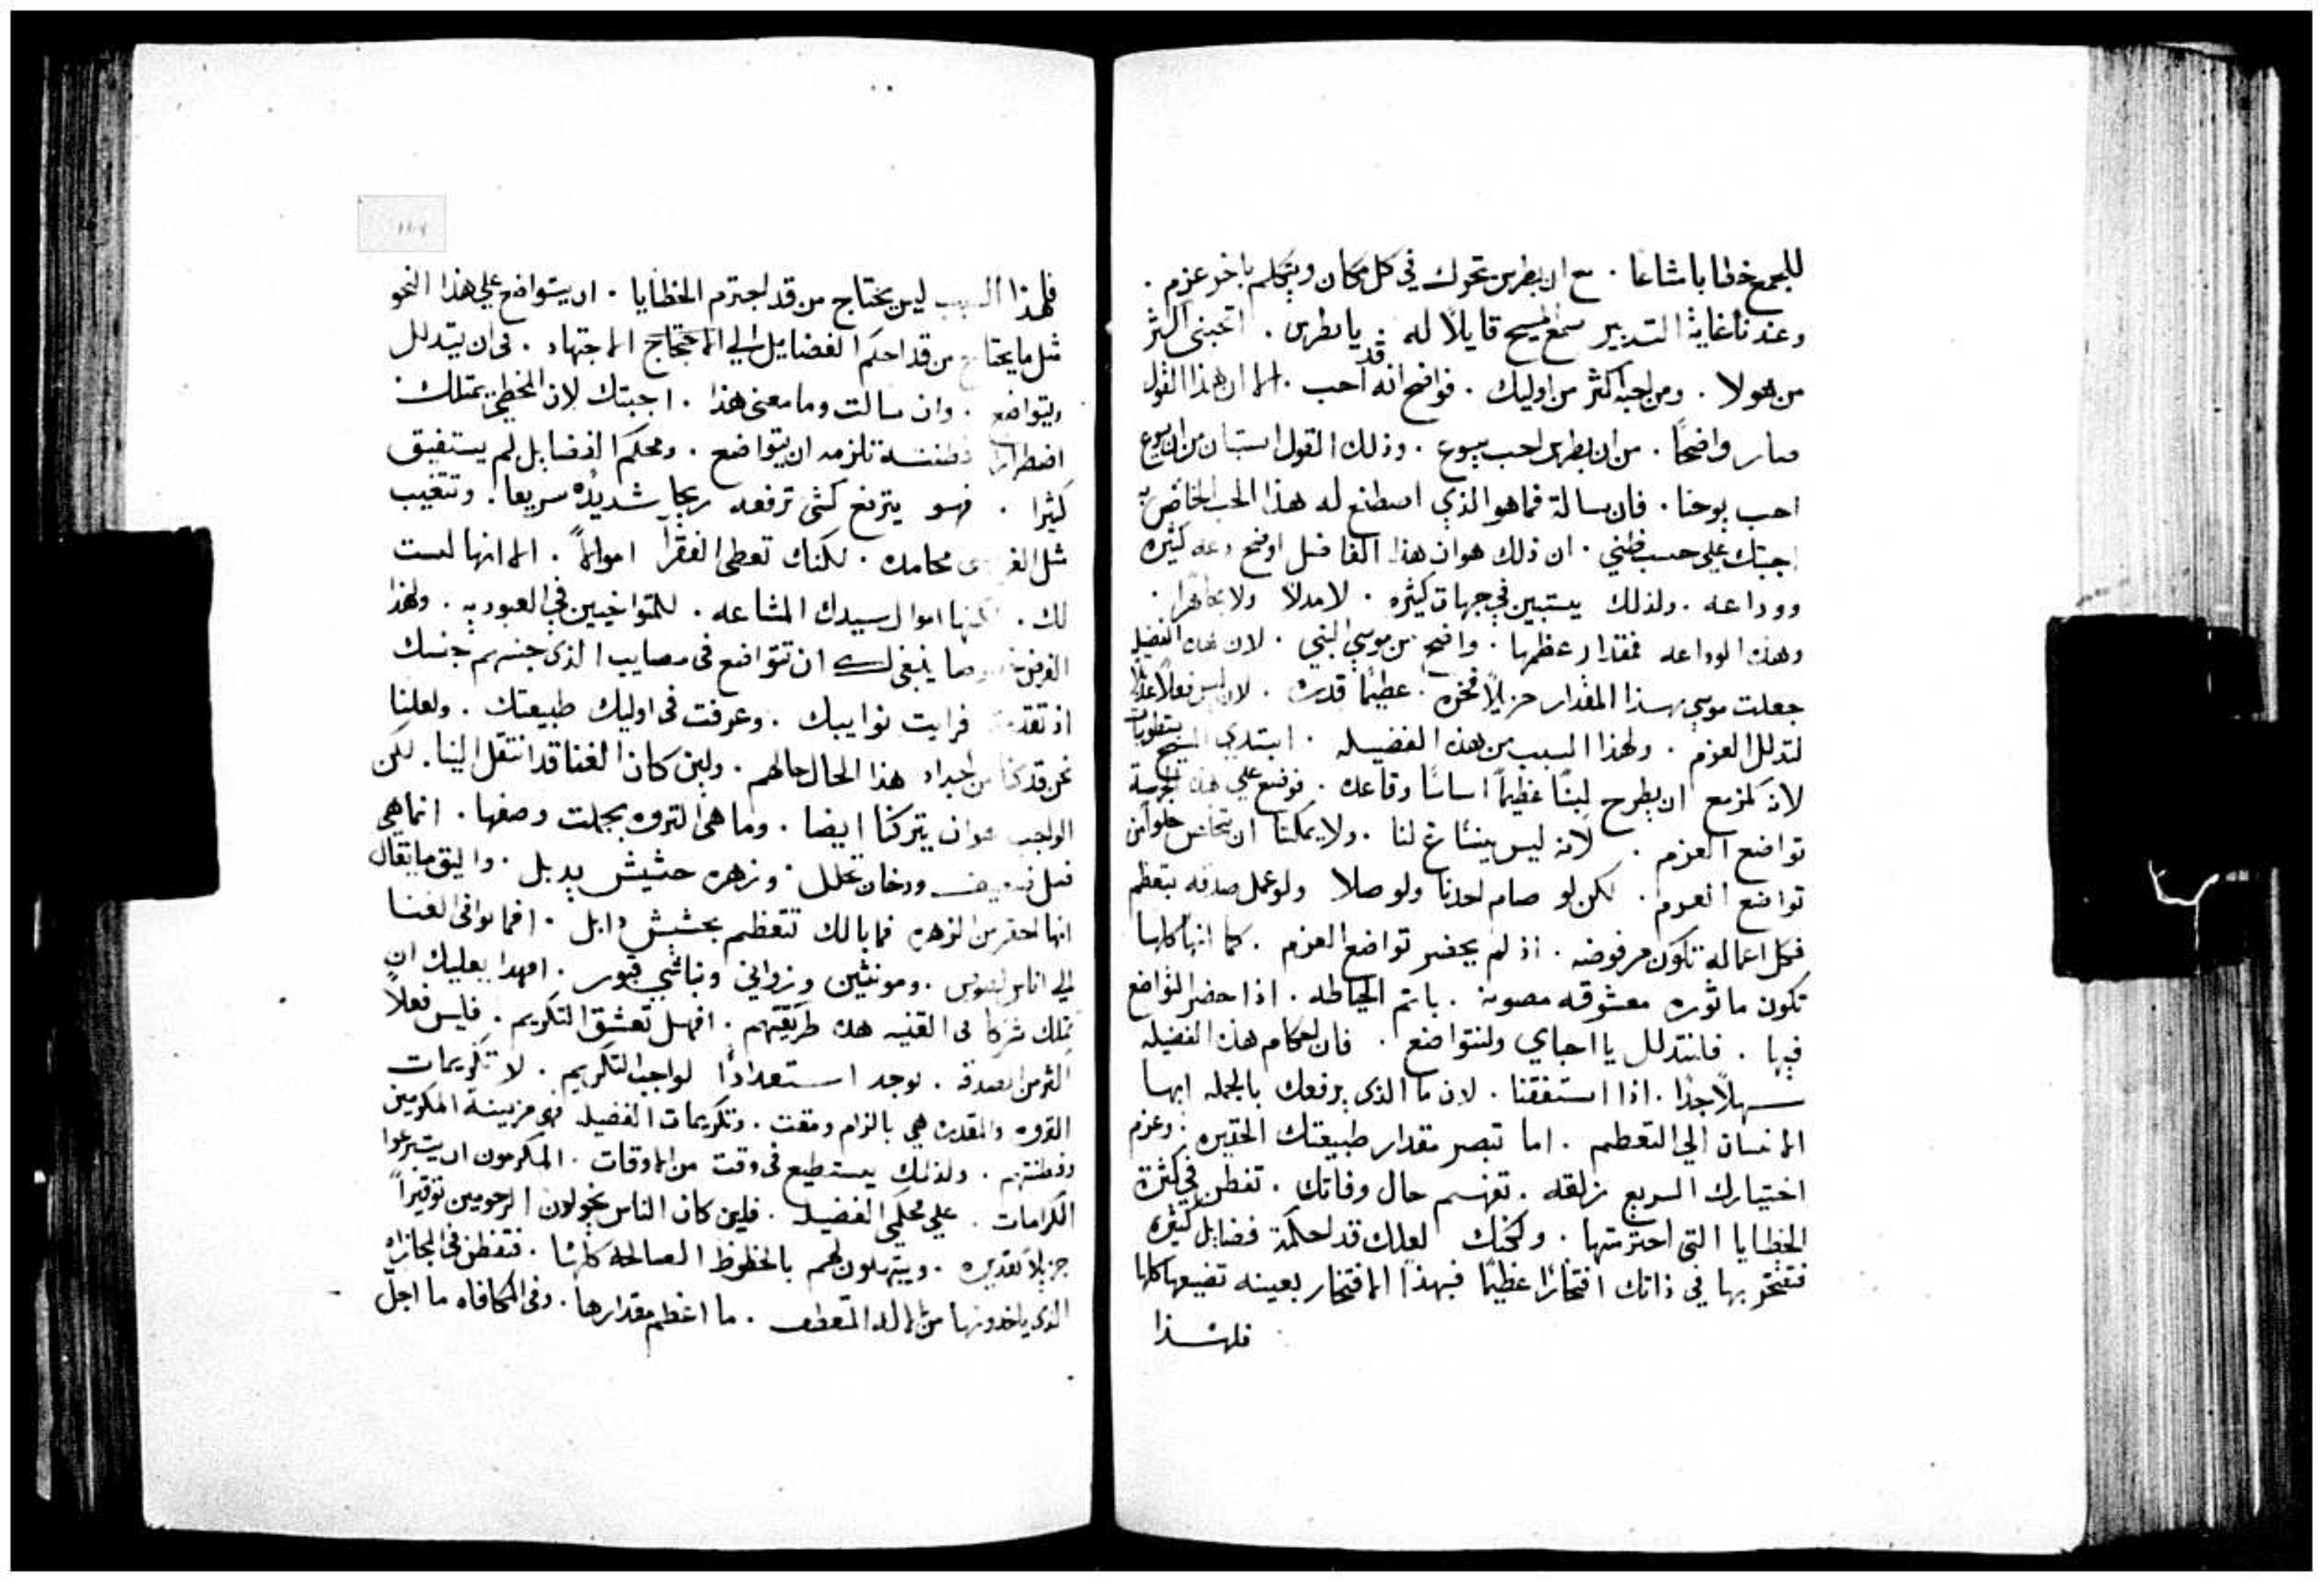 للجمع خطابا مشاعا . مع ان بطرس تحرك في كل مكان ويتكلم باخر عزم .
وعند ناغاية التدبير سمع المسيح قايلاً له . يا بطرس . اتحبني اكثر
من هولا . ومن احبه اكثر من اوليك . فواضح انه قد احب . الا ان هذا القول
صار واضحاً . من ان بطرس احب يسوع . وذلك القول استبان من ان يسوع
احب يوحنا . فان سالة فما هو الذي اصطنع له هذا الحب الخاص به
اجبتك علي حسب ظني . ان ذلك هو ان هذا الفاضل اوضح دعه كثيره
ووداعه . ولذلك يستبين في جهات كثيره . لا مدلاً ولا مجاهرا .
وهذه الوداعه فمقدار عظمها . واضح من موسي النبي . لان هذه الفضيله
جعلت موسي بهذا المقدار جزيلاً فخره . عظيماً قدره . لان ليس فعلاً عديلاً
لتدلل العزم . ولهذا السبب من هذه الفضيله . ابتدي المسيح بتطويبات
لانه كمزمع ان يطرح لبنًا عظيماً اساسًا وقاعده . فوضع علي هذه الجهة
تواضع العزم . لانه ليس ينساغ لنا . ولا يمكنا ان نتخلص خلواً من
تواضع العزم . لكن لو صام احدنا ولو صلا ولو عمل صدقه بتعظم
فكل اعماله تكون مرفوضه . اذ لم يحضر تواضع العزم . كما انها كلها
تكون ماثوره معشوقه مصونه . باتم الحياطه . اذا حضر التواضع
فيها . فلنتدلل يا احباي ولنتواضع . فان احكام هذه الفضيله
سهلاً جدًا . اذا استفقنا . لان ما الذي يرفعك بالجمله ايها
الانسان الي التعظم . اما تبصر مقدار طبيعتك الحقيره . وعزم
اختيارك السريع زلقه . تفهم حال وفاتك . تفطن في كثرة
الخطايا التي اجترمتها . ولكنك لعلك قد احكمة فضايل كثيره
فتفتخر بها في ذاتك افتخارًا عظيمًا فبهذا الافتخار بعينه تضيعها كلها
فلهذا
فلهذا السبب ليس يحتاج من قد اجترم الخطايا . ان يتواضع علي هذا النحو
مثل ما يحتاج من قد احكم الفضايل الي الاحتجاج الاجتهاد . في ان يتدلل
ويتواضع . وان سالت وما معني هذا . اجبتك لان المخطي يمتلك
اضطرارا فطنته تلزمه ان يتواضع . ومحكم الفضايل لم يستفيق
كثيرا . فهو يترفع كشي ترفعه ريحا شديده سريعا . وتتغيب
مثل الغر محامده . لكنك تعطي الفقرآ اموالاً . الا انها ليست
لك . لكنها اموال سيدك المشاعه . للمتواخيين في العبوديه . ولهذا
الغرض خصوصا ينبغي لك ان تتواضع في مصايب الذي جنسهم جنسك
اذ تقدمت فرايت نوايبك . وعرفت في اوليك طبيعتك . ولعلنا
نحن قد كنا من اجداد هذا الحال حالهم . ولين كان الغنا قد انتقل الينا . لكن
الواجب هو ان يتركنا ايضا . وما هي الثروه بجملت وصفها . انما هي
ضعيف ودخان يحلل . وزهره حشيش يدبل . واليق ما يقال
انها احقر من الزهره فما بالك تتعظم بحشيش دابل . افما يوافي الغنا
الي اناس لصوص . ومونثين وزواني ونباشي قبور . افهذا يعليك ان
تملك شركا في القنيه هذه طريقتهم . افهل تعشق التكريم . فليس فعلاً
اكثر من الصدقه . يوجد استعدادًا لواجب التكريم . لا تكريمات
الثروه والمقدره هي بالزام ومقت . وتكريمات الفضيله فهي مزينة المكرمين
وفطنتهم . ولذلك يستطيع في وقت من الاوقات . المكرمون ان يتبرعوا
الكرامات . علي محكمي الفضيله . فلين كان الناس يخولون المرحومين توقيراً
جزيلاً تقديره . ويتهلون لهم بالحظوظ الصالحه كلها . فتفطن في المجازاه
الذي ياخذونها من الاله المتعطف . ما اعظم مقدارها . وفي المكافاه ما اجلّ